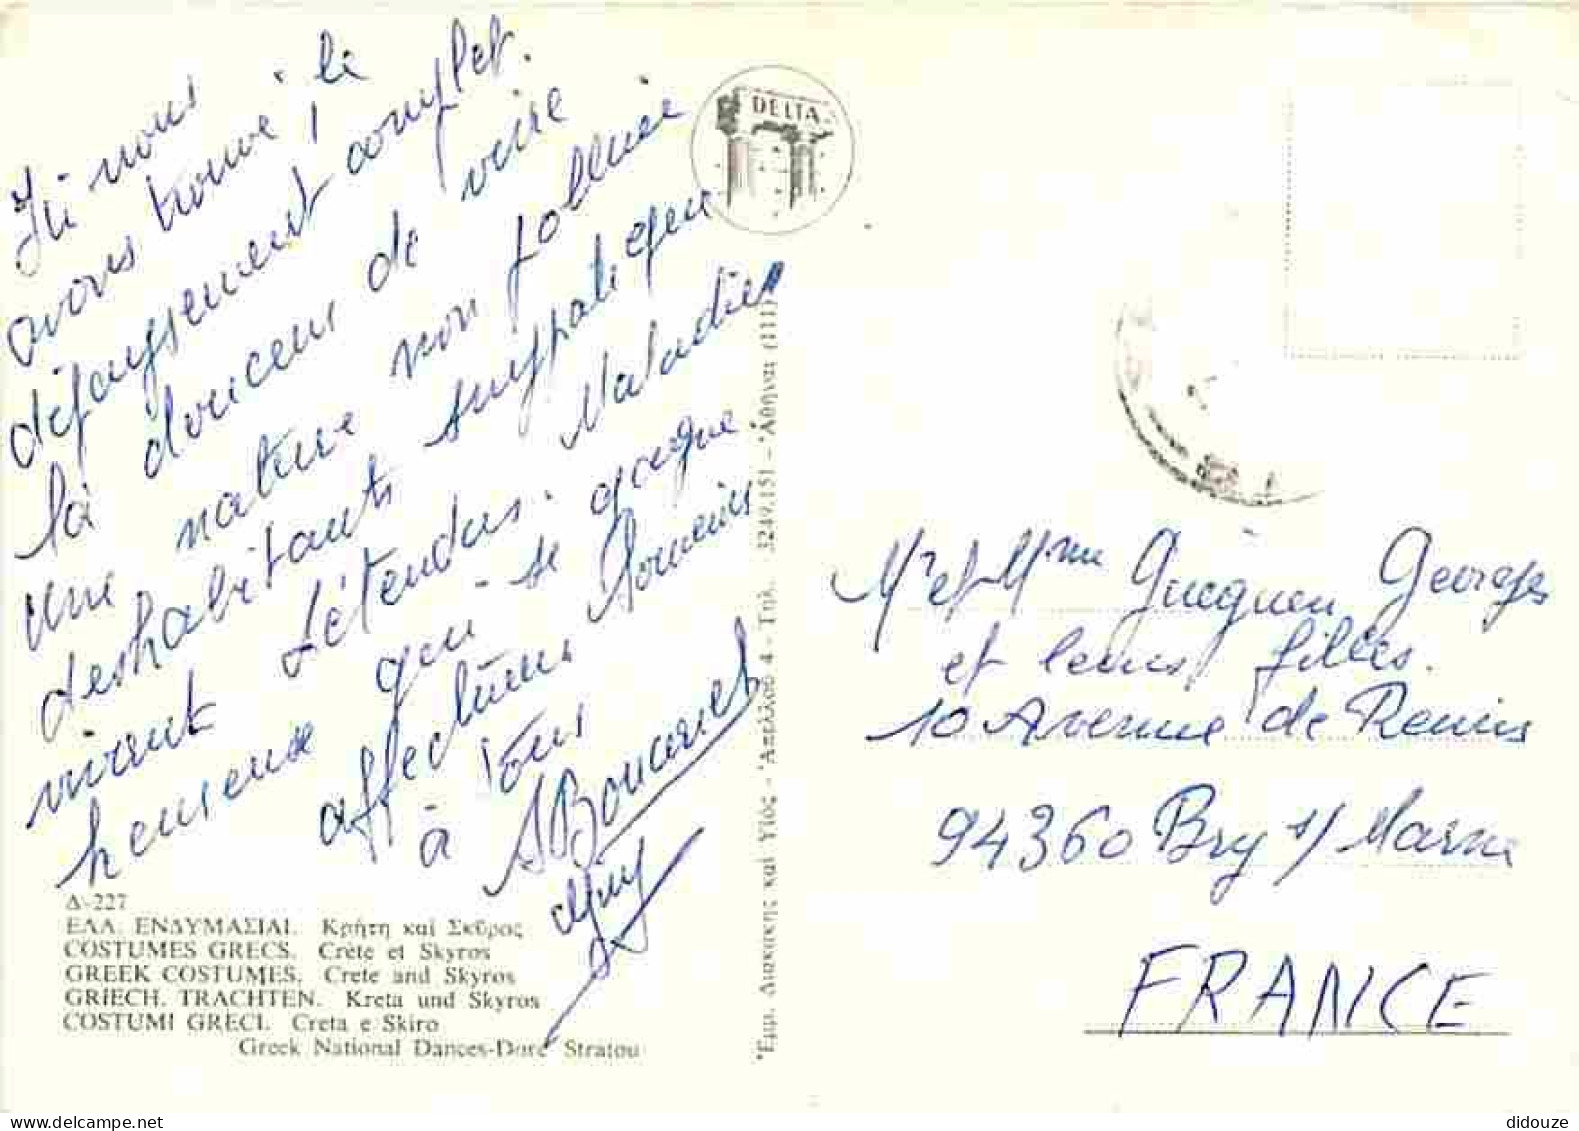 Ici nous
avons trouvé, le
dépaysement complet.
la douceur de vivre
une nature non polluée
des habitants sympatiques
vivent détendus. Maladies
heureuse qui se
affectueux Souvenirs
à tous
Guy
DELTA
Δ-227
ΕΛΛ. ΕΝΔΥΜΑΣΙΑΙ. Κρήτη καί Σκῦρος
COSTUMES GRECS. Crète et Skyros
GREEK COSTUMES. Crete and Skyros
GRIECH. TRACHTEN. Kreta und Skyros
COSTUMI GRECI. Creta e Skiro
Greek National Dances-Dora Stratou
Ἐμμ. Διακάκης καί Υἱός - Ἀπελλοῦ 4 - Τηλ. 3249.151 - Ἀθῆναι (111)
Mr et Mme Guéguen Georges
et leurs filles.
10 Avenue de Reims
94360 Bry s/ Marne
FRANCE
didouze